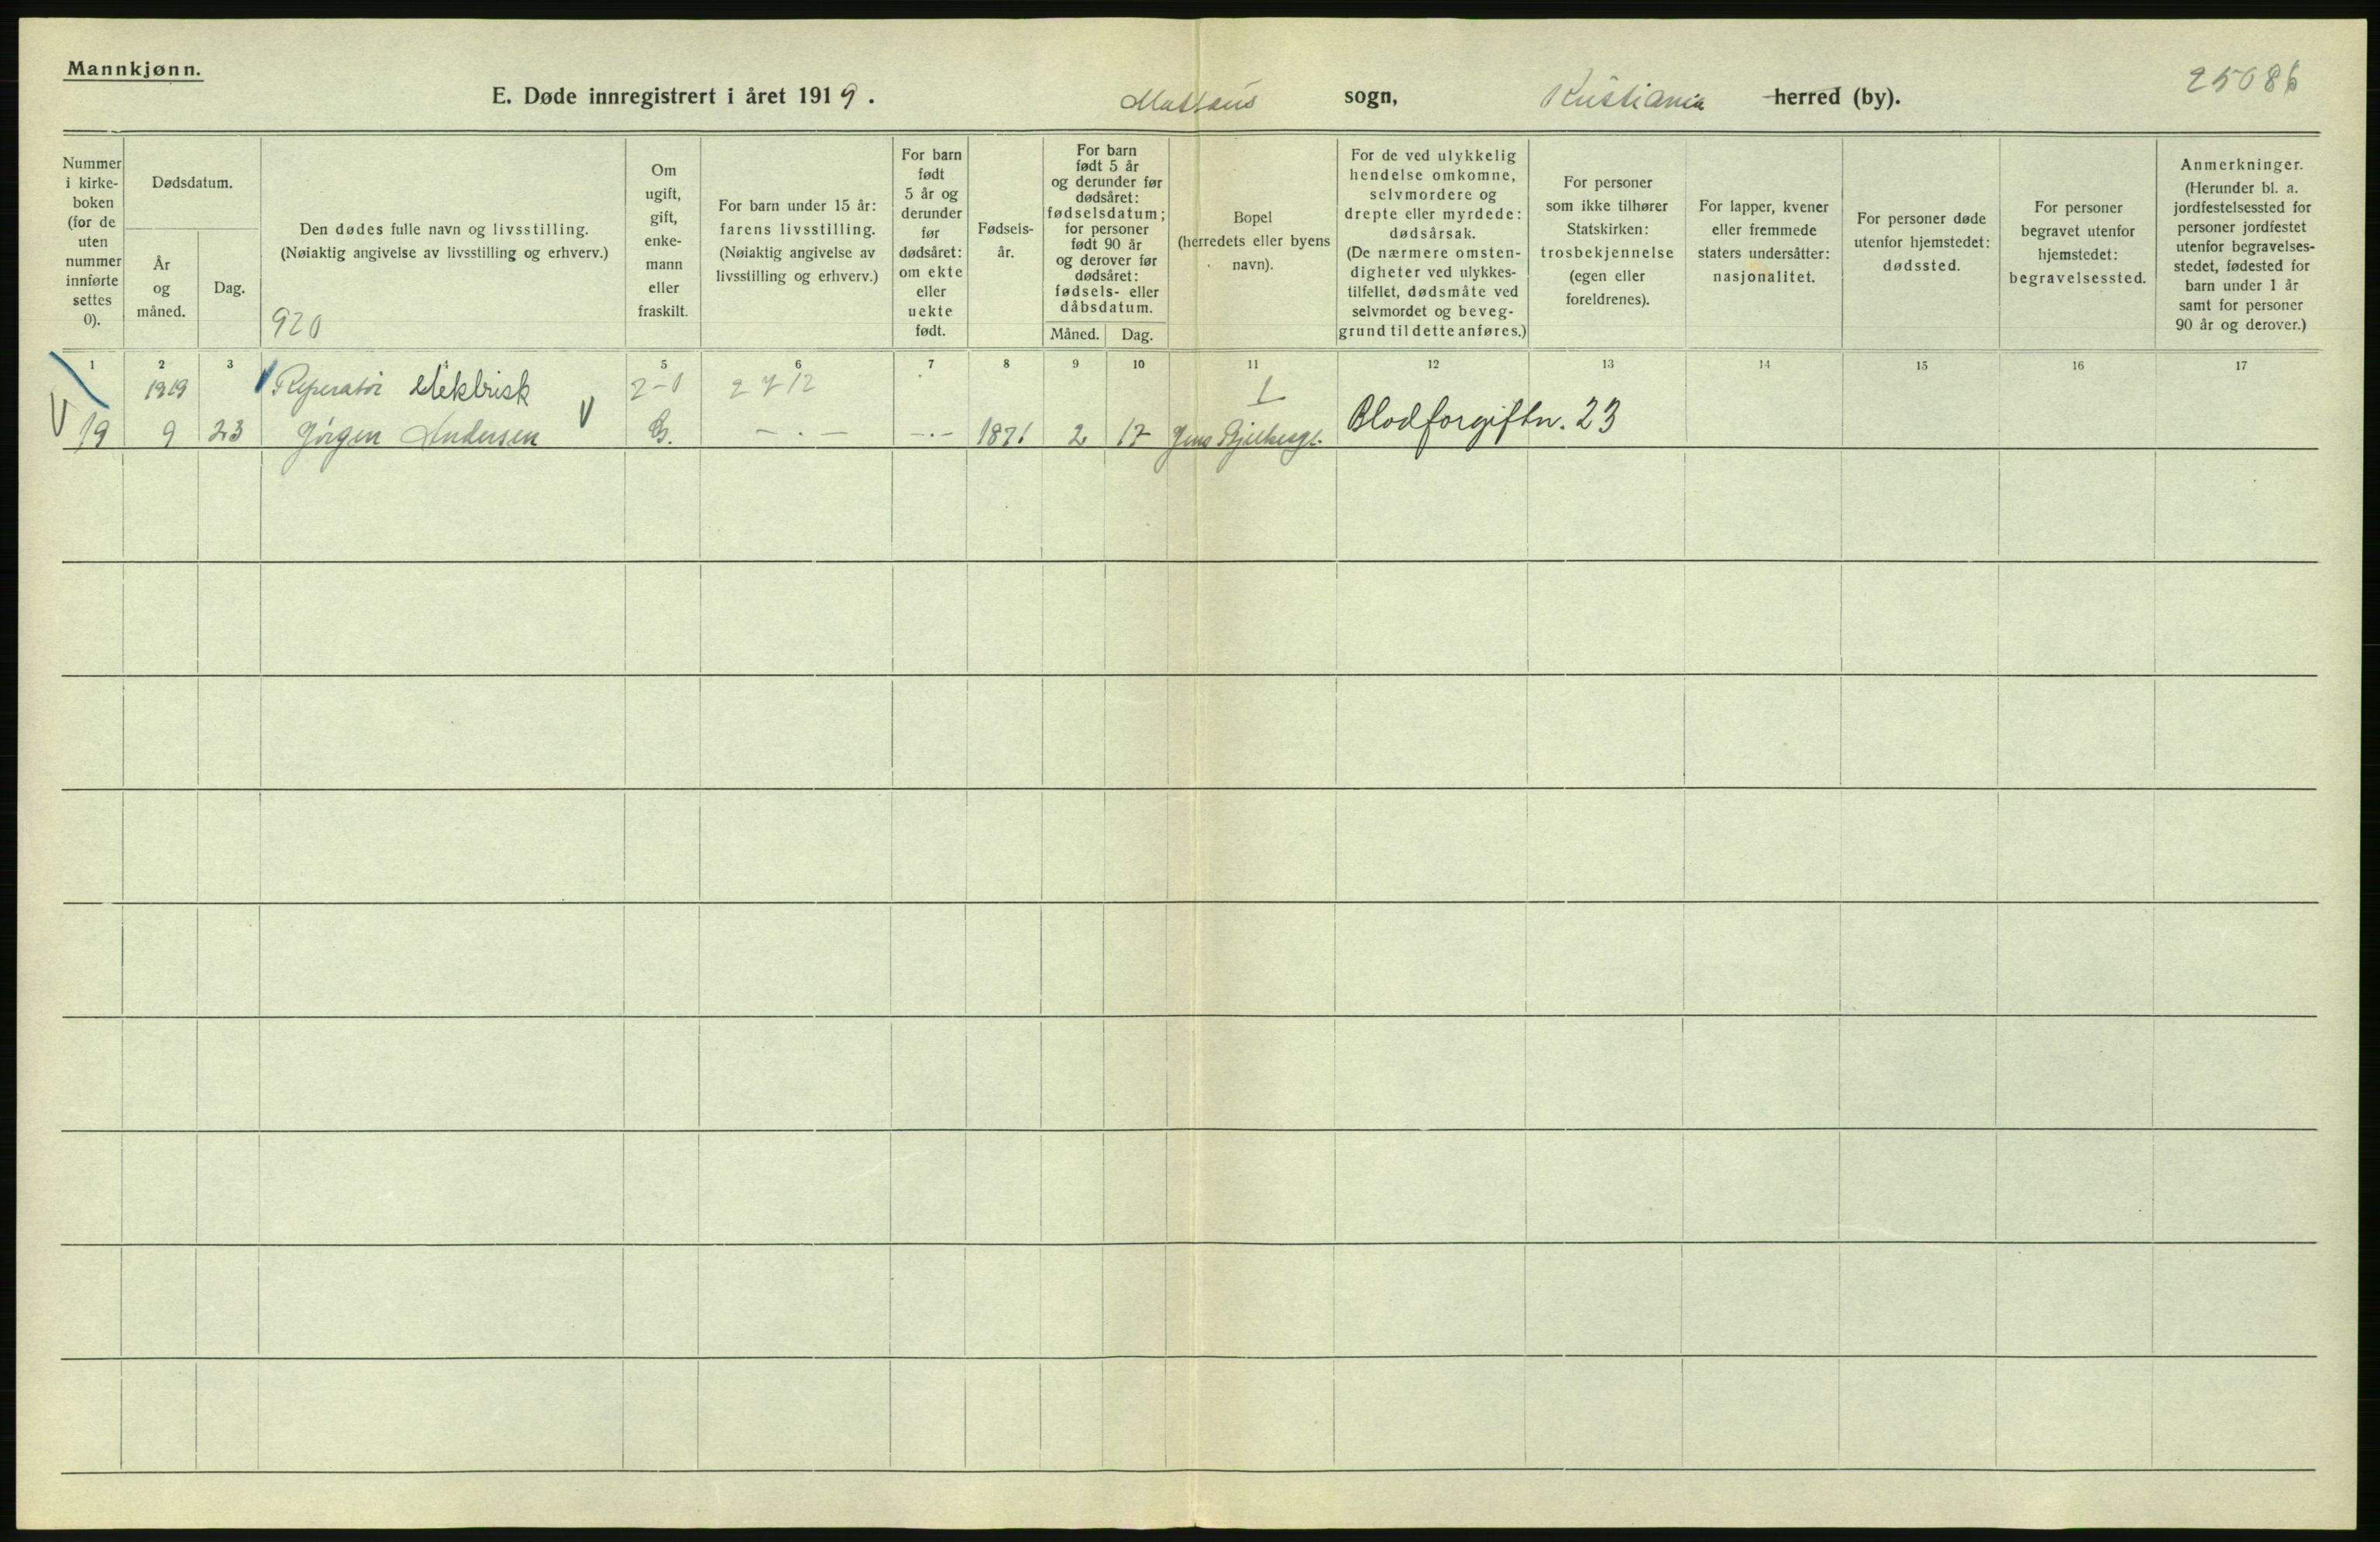 Mannkjønn.
E. Døde innregistrert i året 1919. Mattæus sogn, Kristiania herred (by). 25086
Nummer i kirke-boken (for de uten nummer innførte settes 0).
Dødsdatum.
År og måned.
Dag.
Den dødes fulle navn og livsstilling.
(Nøiaktig angivelse av livsstilling og erhverv.)
920
Om ugift, gift, enke-mann eller fraskilt.
For barn under 15 år: farens livsstilling.
(Nøiaktig angivelse av livsstilling og erhverv.)
For barn født 5 år og derunder før dødsåret: om ekte eller uekte født.
Fødsels-år.
For barn født 5 år og derunder før dødsåret: fødselsdatum; for personer født 90 år og derover før dødsåret: fødsels- eller dåbsdatum.
Måned. Dag.
Bopel
(herredets eller byens navn).
For de ved ulykkelig hendelse omkomne, selvmordere og drepte eller myrdede: dødsårsak.
(De nærmere omsten-digheter ved ulykkes-tilfellet, dødsmåte ved selvmordet og beveg-grund til dette anføres.)
For personer som ikke tilhører Statskirken: trosbekjennelse (egen eller foreldrenes).
For lapper, kvener eller fremmede staters undersåtter: nasjonalitet.
For personer døde utenfor hjemstedet: dødssted.
For personer begravet utenfor hjemstedet: begravelsessted.
Anmerkninger.
(Herunder bl. a. jordfestelsessted for personer jordfestet utenfor begravelses-stedet, fødested for barn under 1 år samt for personer 90 år og derover.)
1 2 3 5 6 7 8 9 10 11 12 13 14 15 16 17
1919 Reperatør elektrisk 2-0 2712 1
19 9 23 Jörgen Andersen G. -.- -.- 1871 2 17 Jens Bjelkesgt. Blodforgiftn. 23